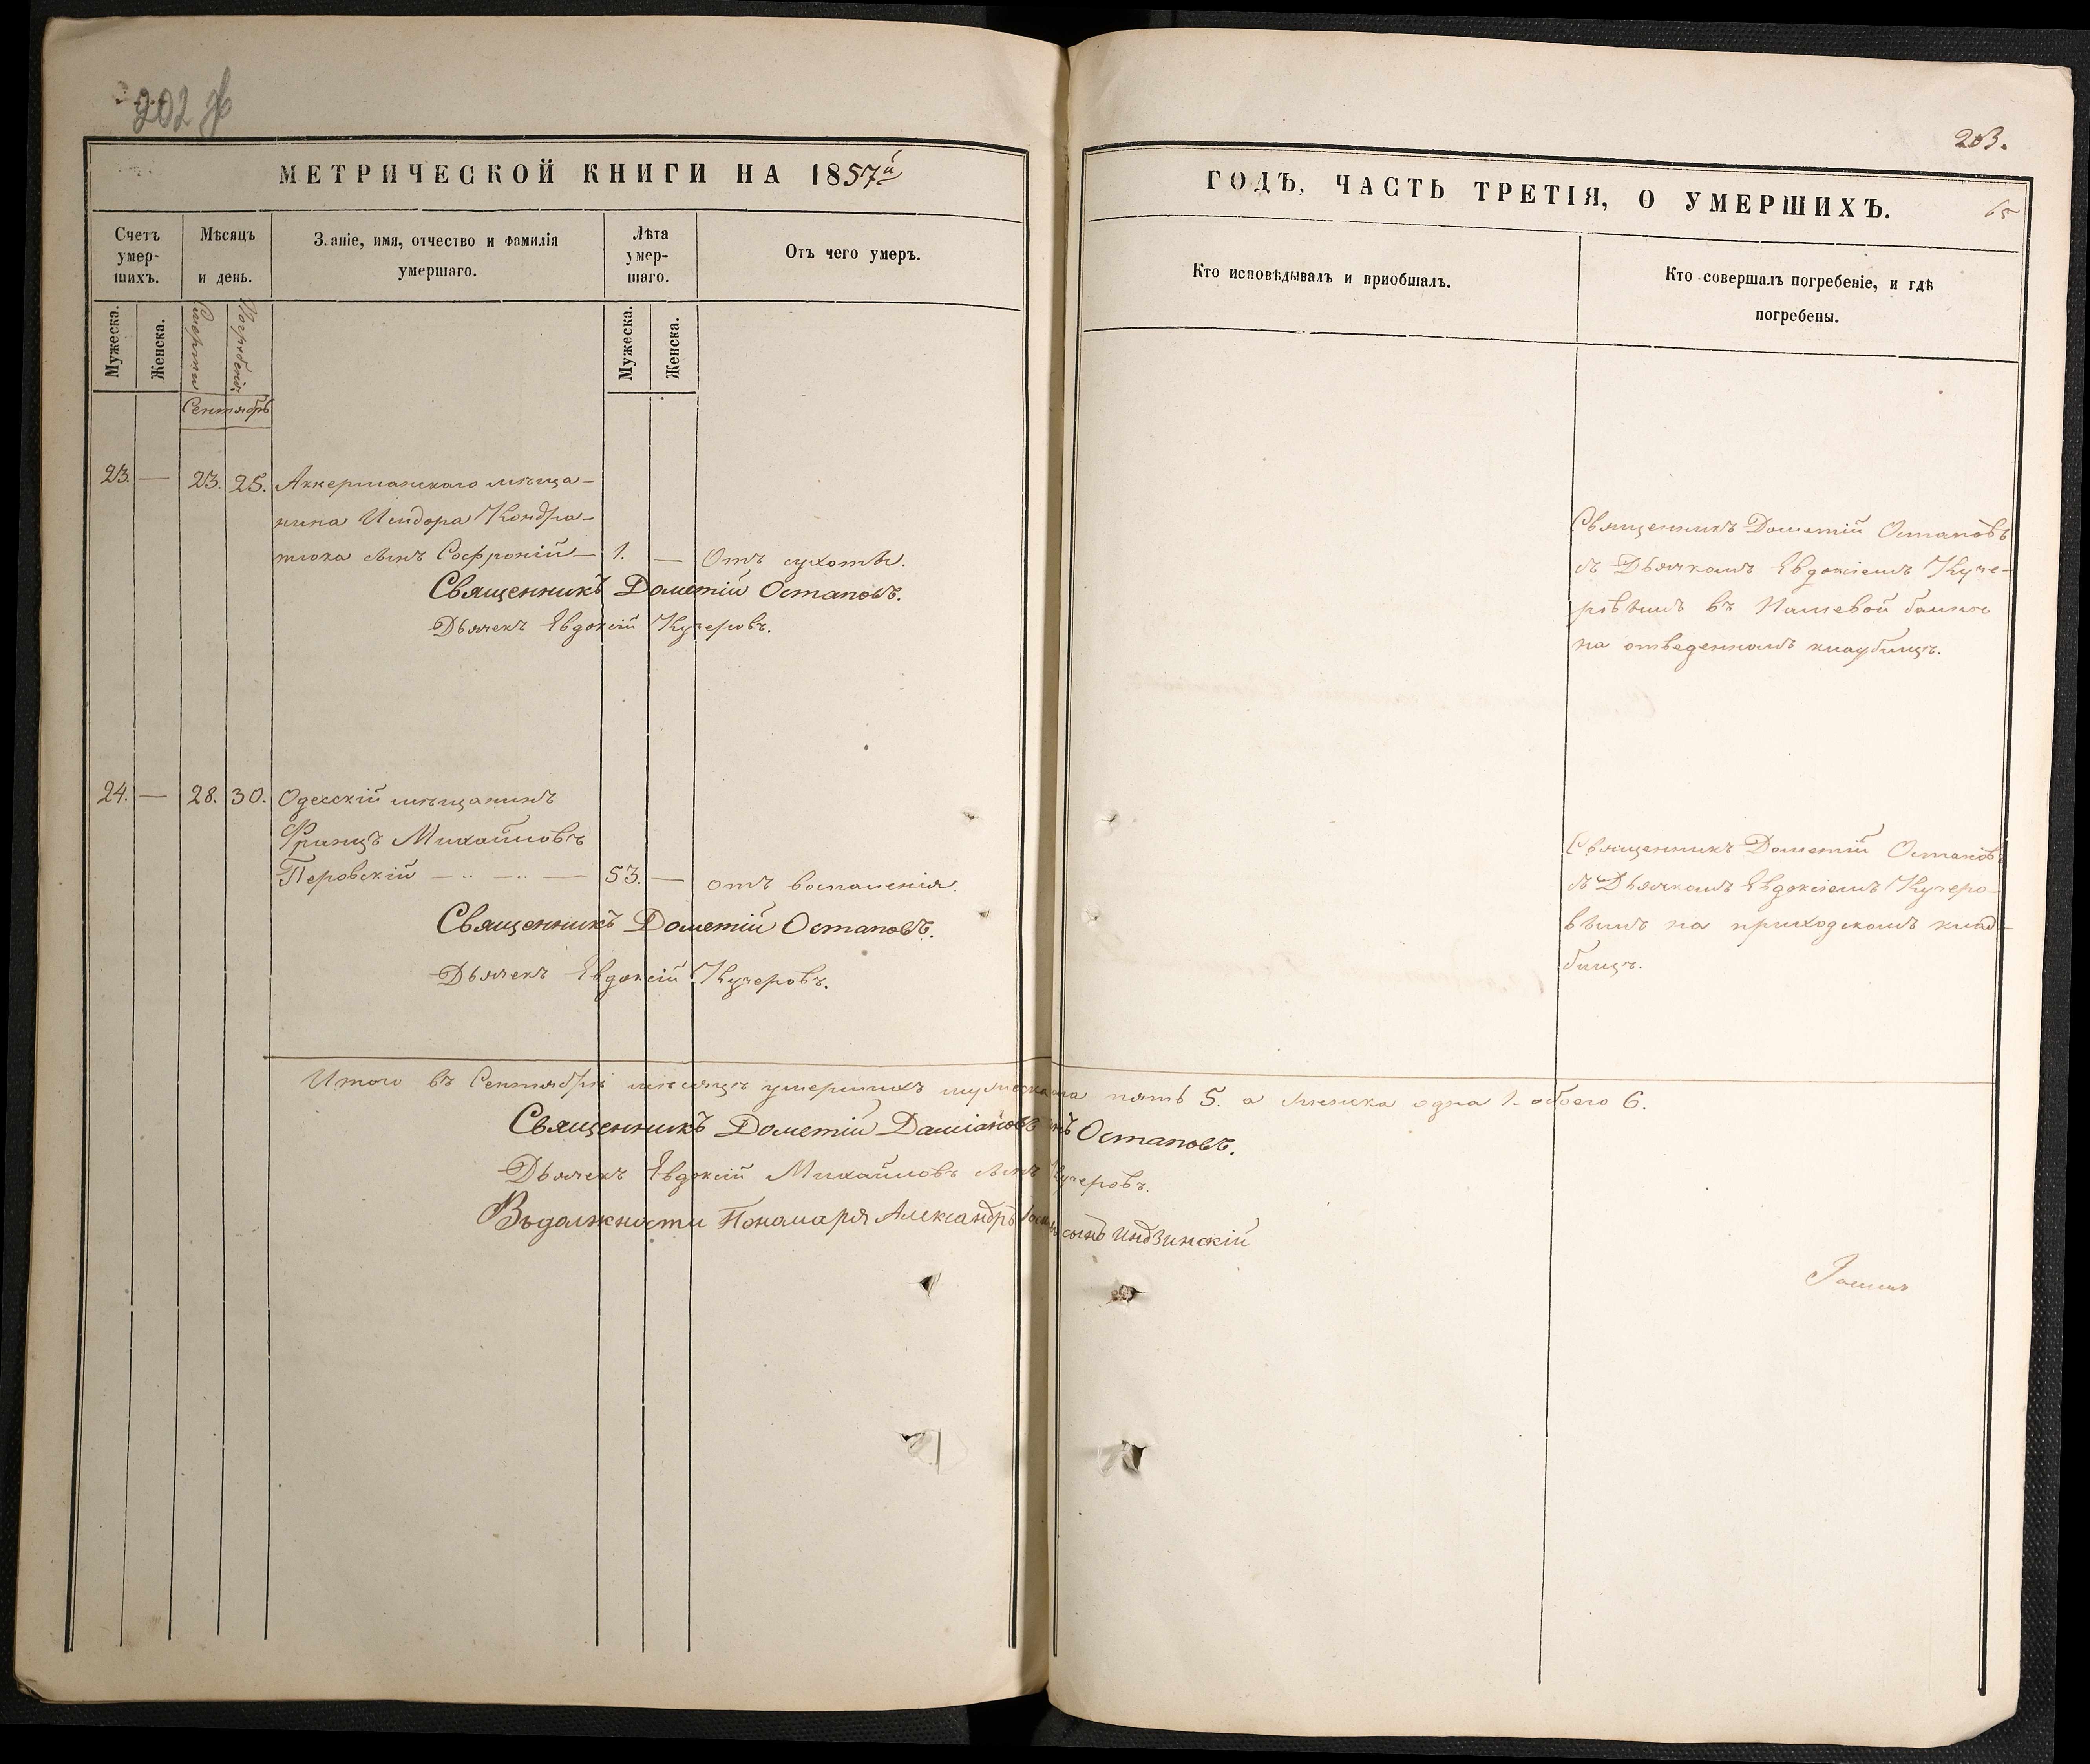 202
МЕТРИЧЕСКОЙ КНИГИ НА 1857й
Счетъ умер-шихъ.
Мѣсяцъ и день.
Званіе, имя, отчество и фамилія
умершаго.
Лѣта умер-шаго.
Отъ чего умеръ.
Мужеска.
Женска.
Смерти
Погребенія
Мужеска.
Женска.
Сентябрь
23. — 23. 25. Аккерманскаго мѣща-
нина Исидора Кондра-
тюка сынъ Софроній — 1. — Отъ сухоты.
Священникъ Дометій Остаповъ.
Дьячекъ Евдокій Кучеровъ.
24. — 28. 30. Одесскій мѣщанинъ
Францъ Михайловъ
Перовскій — — — 53. — отъ воспаленія.
Священникъ Дометій Остаповъ.
Дьячекъ Евдокій Кучеровъ.
203.
65
ГОДЪ, ЧАСТЬ ТРЕТІЯ, О УМЕРШИХЪ.
Кто исповѣдывалъ и пріобщалъ.
Кто совершалъ погребеніе, и гдѣ
погребены.
Священникъ Дометій Остаповъ
съ Дьячкомъ Евдокіемъ Куче-
ровымъ въ балкѣ
на отведенномъ кладбищѣ.
Священникъ Дометій Остаповъ
съ Дьячкомъ Евдокіемъ Кучеро-
вымъ на приходскомъ клад-
бищѣ.
Итого въ Сентябрѣ мѣсяцѣ умершихъ мужеска пола пять 5. а женска одна 1. обоего 6.
Священникъ Дометій Даміановъ сынъ Остаповъ.
Дьячекъ Евдокій Михайловъ сынъ Кучеровъ.
Въ должности Пономаря Александръ сынъ Индзинскій